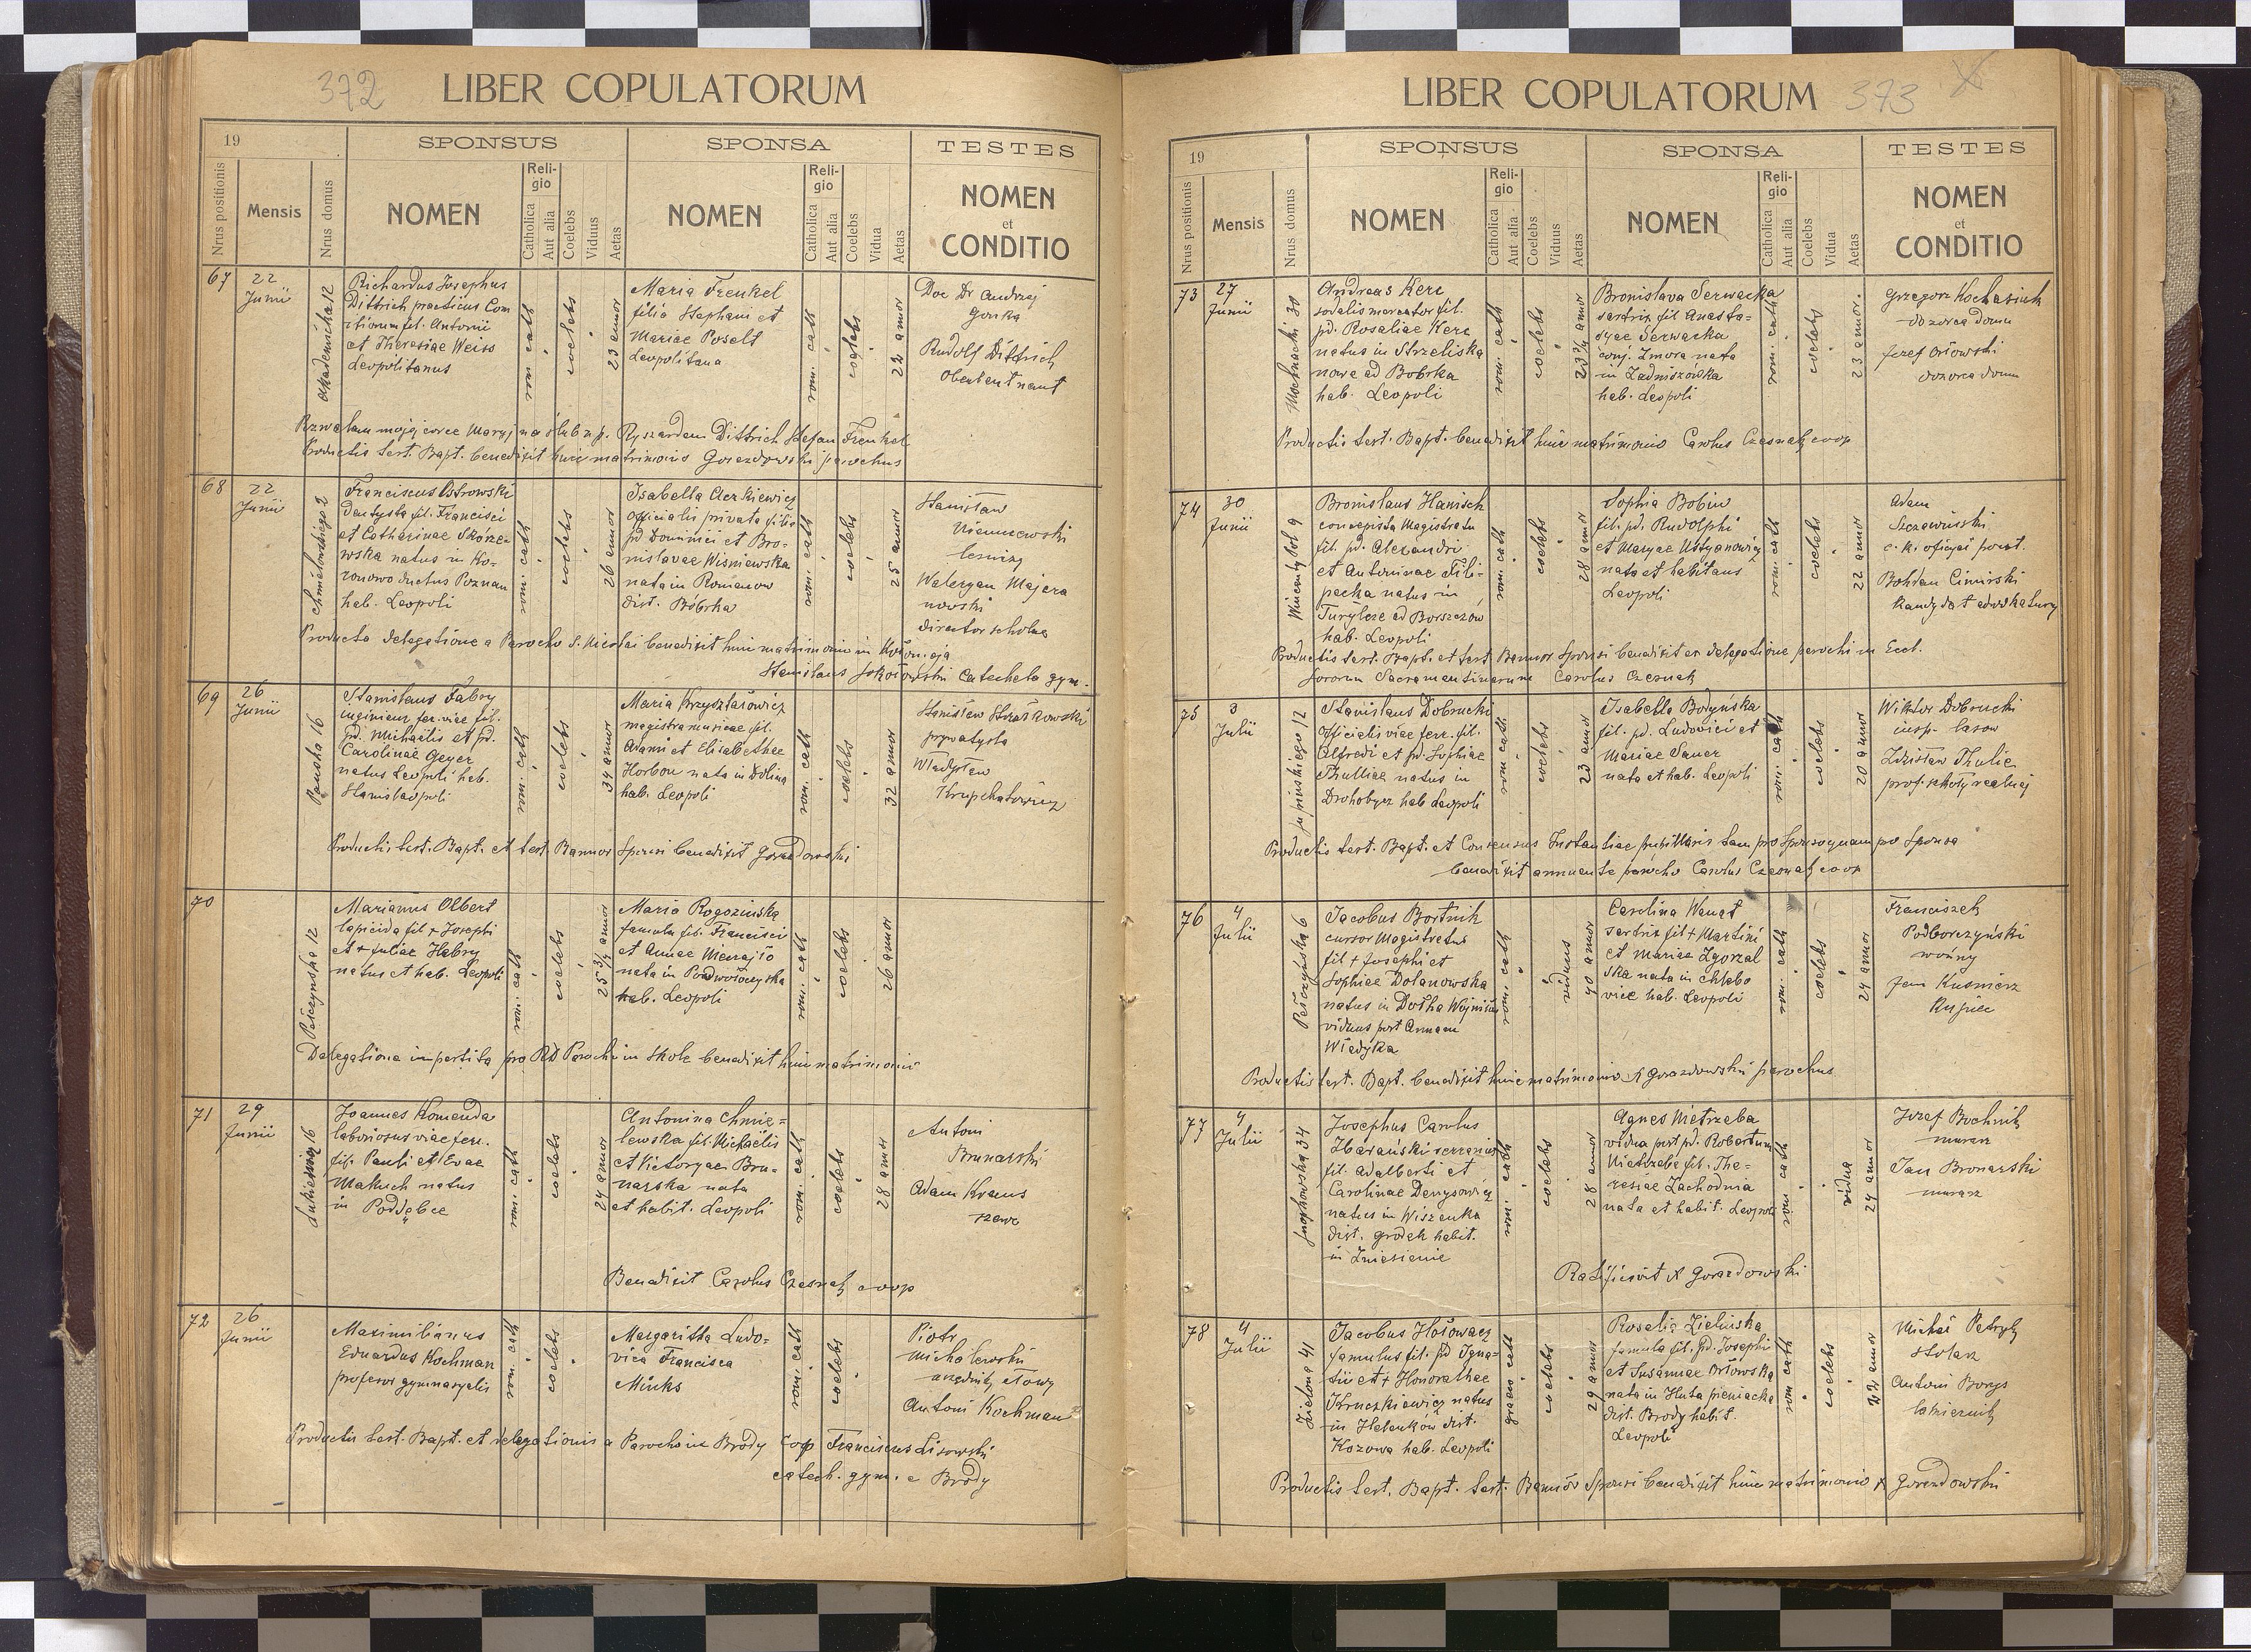 372
LIBER COPULATORUM
19
SPONSUS
SPONSA
TESTES
Nrus positionis
Mensis
Nrus domus
NOMEN
Religio
Catholica
Aut alia
Coelebs
Viduus
Aetas
NOMEN
Religio
Catholica
Aut alia
Coelebs
Vidua
Aetas
NOMEN
et
CONDITIO
67
22
Junii
Akademicka 12
Richardus Josephus
Dittrich practicus Con
fil. Antonii
et Theresiae Weiss
Leopolitanus
rom. cath
coelebs
23 annor
Maria Frenkel
filia Stephani et
Mariae Poselt
Leopolitana
rom. cath
coelebs
22 annor
Doc Dr Andrzej
Gonka
Rudolf Dittrich
Oberleutnant
mojej corce Maryj na ślub z p. Ryszardem Dittrich Stefan Frenkel
Productis test. Bapt. benedixit huic matrimonio Gorazdowski parochus
68
22
Junii
Chmielowskiego 2
Franciscus Ostrowski
dentysta fil. Francisci
et Catharinae Skórze-
wska natus in Ko-
ronowo ductus Poznan
hab. Leopoli
rom. cath
coelebs
26 annor
Isabella
officialis privata filia
pd Dominici et Bro-
nislavae Wiśniewska
nata in Romanow
dist. Bóbrka
rom. cath
coelebs
25 annor
Stanisław
Wiśniewski
leśniczy
Waleryan Majera
nowski
director scholae
Producta delegatione a Parocho S. Nicolai benedixit huic matrimonio in
Stanislaus Sokołowski Catecheta gym.
69
26
Junii
Pańska 16
Stanislaus Fabry
ingenieur fer. viae fil.
pd. Michaelis et pd.
Carolinae Geyer
natus Leopoli hab.
Stanislaopoli
rom. cath
coelebs
34 annor
Maria Krzyształowicz
magistra musicae fil.
Adami et Elisabethae
Horbou nata in Dolina
hab. Leopoli
rom. cath
coelebs
32 annor
Stanisław
prywatysta
Władysław
Productis test. Bapt. et test Bannor Sponsi benedixit Gorazdowski
70
Pełczynska 12
Marianus Olbert
lapicida fil + Josephi
et + Juliae Habry
natus et hab. Leopoli
rom. cath
coelebs
25 3/4 annor
Maria Rogozinska
famula fil. Francisci
et Annae
nata in Podwołoczyska
hab. Leopoli
rom. cath
coelebs
26 annor
Delegatione impertita pro RD Parocho in Skole benedixit huic matrimonio
71
29
Junii
16
Joannes Komenda
laboriosus viae ferr.
fil. Pauli et Evae
Makuch natus
in Poddębce
rom. cath
coelebs
24 annor
Antonina Chmie-
lewska fil. Michaelis
et Victoryae Bru-
narska nata
et habit. Leopoli
rom. cath
coelebs
28 annor
Antoni
Brunarski
Adam Kraus
szewc
Benedixit Carolus Czesnak coop
72
26
Junii
Maximilianus
Eduardus Kochman
profesor gymnasyalis
rom. cath
coelebs
Margaritha Ludo-
vica Francisca
Minks
rom. cath
coelebs
Piotr
Michalewski
urzędnik cłowy
Antoni Kochman
Productis test. Bapt. et delegationis a Parocho in Brody cop Franciscus Lisowski
catech. gym. e Brody
LIBER COPULATORUM
373
19
SPONSUS
SPONSA
TESTES
Nrus positionis
Mensis
Nrus domus
NOMEN
Religio
Catholica
Aut alia
Coelebs
Viduus
Aetas
NOMEN
Religio
Catholica
Aut alia
Coelebs
Vidua
Aetas
NOMEN
et
CONDITIO
73
27
Junii
Mochnacki 30
Andreas Kerc
sodalis mercator fil.
pd. Rosaliae Kerc
natus in Strzeliska
nowe ad Bobrka
hab. Leopoli
rom. cath
coelebs
23 3/4 annor
Bronislava Serwacka
sartrix fil Anasta-
syae Serwacka
conj. Zmora nata
in Zadniszówka
hab. Leopoli
rom. cath
coelebs
23 annor.
Grzegorz Kochasiuk
dozorca domu
Jozef Orłowski
dozorca domu
Productis test. Bapt. benedixit huic matrimonio Carolus Czesnak coop
74
30
Junii
Wincentypol 9
Bronislaus Hanisch
concepista Magistratu
fil. pd. Alexandri
et Antoninae Fili-
pecka natus in
Turylcze ad Borszczów
hab. Leopoli
rom. cath
coelebs
28 annor
Sophia Bobin
fil. pd. Rudolphi
et Maryae Ustyanowicz
nata et habitans
Leopoli
rom. cath
coelebs
22 annor
Adam
Szczawiński
c. k. oficyał poczt.
Bohdan Cimirski
kandydat adwokatury
Productis test. Bapt. et test. Bannor Sponsi benedixit ex delegatione parochi in Eccl.
Sororum Sacramentinarum Carolus Czesnak
75
3
Julii
12
Stanislaus Dobrucki
officialis viae ferr. fil.
Alfredi et pd. Sophiae
Thulliae natus in
Drohobycz hab Leopoli
rom. cath
coelebs
23 annor
Isabella Bołyńska
fil. pd. Ludovici et
Mariae Sauer
nata et hab. Leopoli
rom. cath
coelebs
20 annor
Wiktor Dobrucki
insp. lasow
Zdzisław Thulie
prof. szkoły realnej
Productis test. Bapt. et Consensus Instantiae pupillaris tam pro Sponso quam pro Sponsa
benedixit annuente parocho Carolus Czesnak coop
76
4
Julii
Pełczyńska 6
Jacobus Bortnik
cursor Magistratus
fil + Josephi et
Sophiae Dolanowska
natus in Dołha Wojniłow
viduus post Annam
Władyka
rom. cath
viduus
40 annor
Carolina Wengt
sartrix fil + Martini
et Mariae Zgorzal
ska nata in Chlebo
vice hab. Leopoli
rom. cath
coelebs
24 annor
Franciszek
Podborczyński
woźny
Jan Kusnierz
Kupiec
Productis test. Bapt. benedixit huic matrimonio X Gorazdowski parochus
77
4
Julii
Janowska 34
Josephus Carolus
Harański
fil. Adalberti et
Carolinae Denysowicz
natus in Wiszenka
dist. Grodek habit.
in Zniesienie
rom. cath
coelebs
28 annor
Agnes Nietrzeba
vidua post pd. Robertum
Nietrzeba fil. The-
resiae Zachodnia
nata et habit. Leopoli
rom cath
vidua
24 annor
Jozef Bochnik
murarz
Jan Bronarski
murarz
Ratificavit X Gorazdowski
78
4
Julii
Zielona 41
Jacobus Hołowacz
famulus fil. pd Igna-
tii et + Honorathae
Kruczkiewicz natus
in Helenków dist.
Kozowa hab. Leopoli
graeco cath
coelebs
29 annor
Rosalia Zielinska
famula fil. pd. Josephi
et Susannae Orłowska
nata in Huta pieniacka
dist. Brody habit.
Leopoli
rom cath
coelebs
22 annor
Michał Petryk
stolarz
Antoni Borys
Productis test. Bapt. test. Bannor Sponsi benedixit huic matrimonio X Gorazdowski